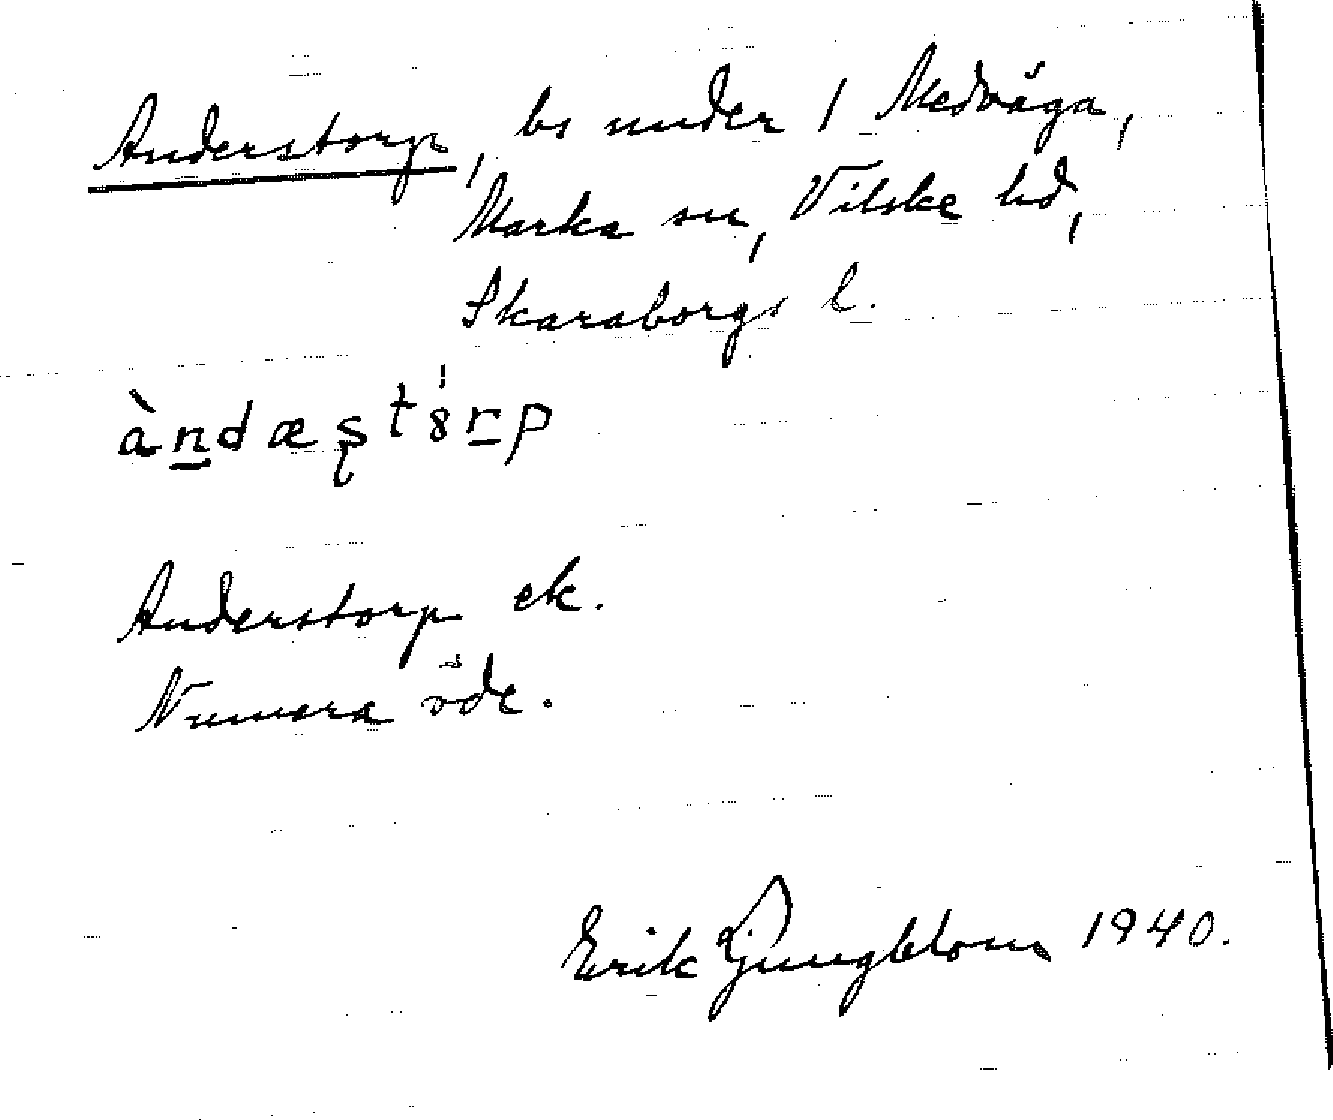 Anderstorp, bs under 1 Medvåga,
Marka sn, Vilske hd,
Skaraborgs l.
àndæștörp
Anderstorp ek.
Numera öde.
Erik Ljungblom 1940.